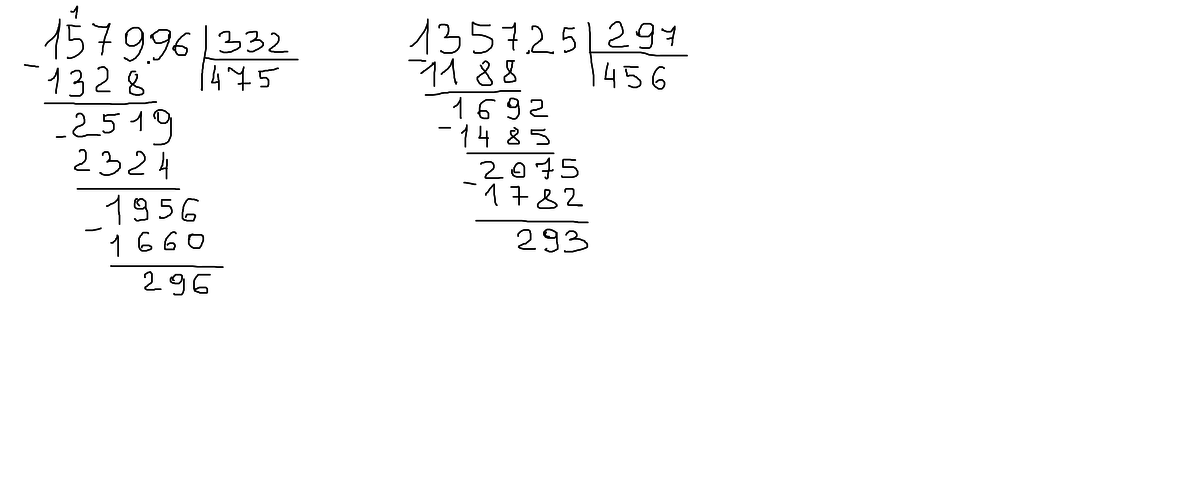 1
157996 332
- 1328 475
- 2519
2324
1956
- 1660
296
135725 297
- 1188 456
1692
- 1485
2075
- 1782
293